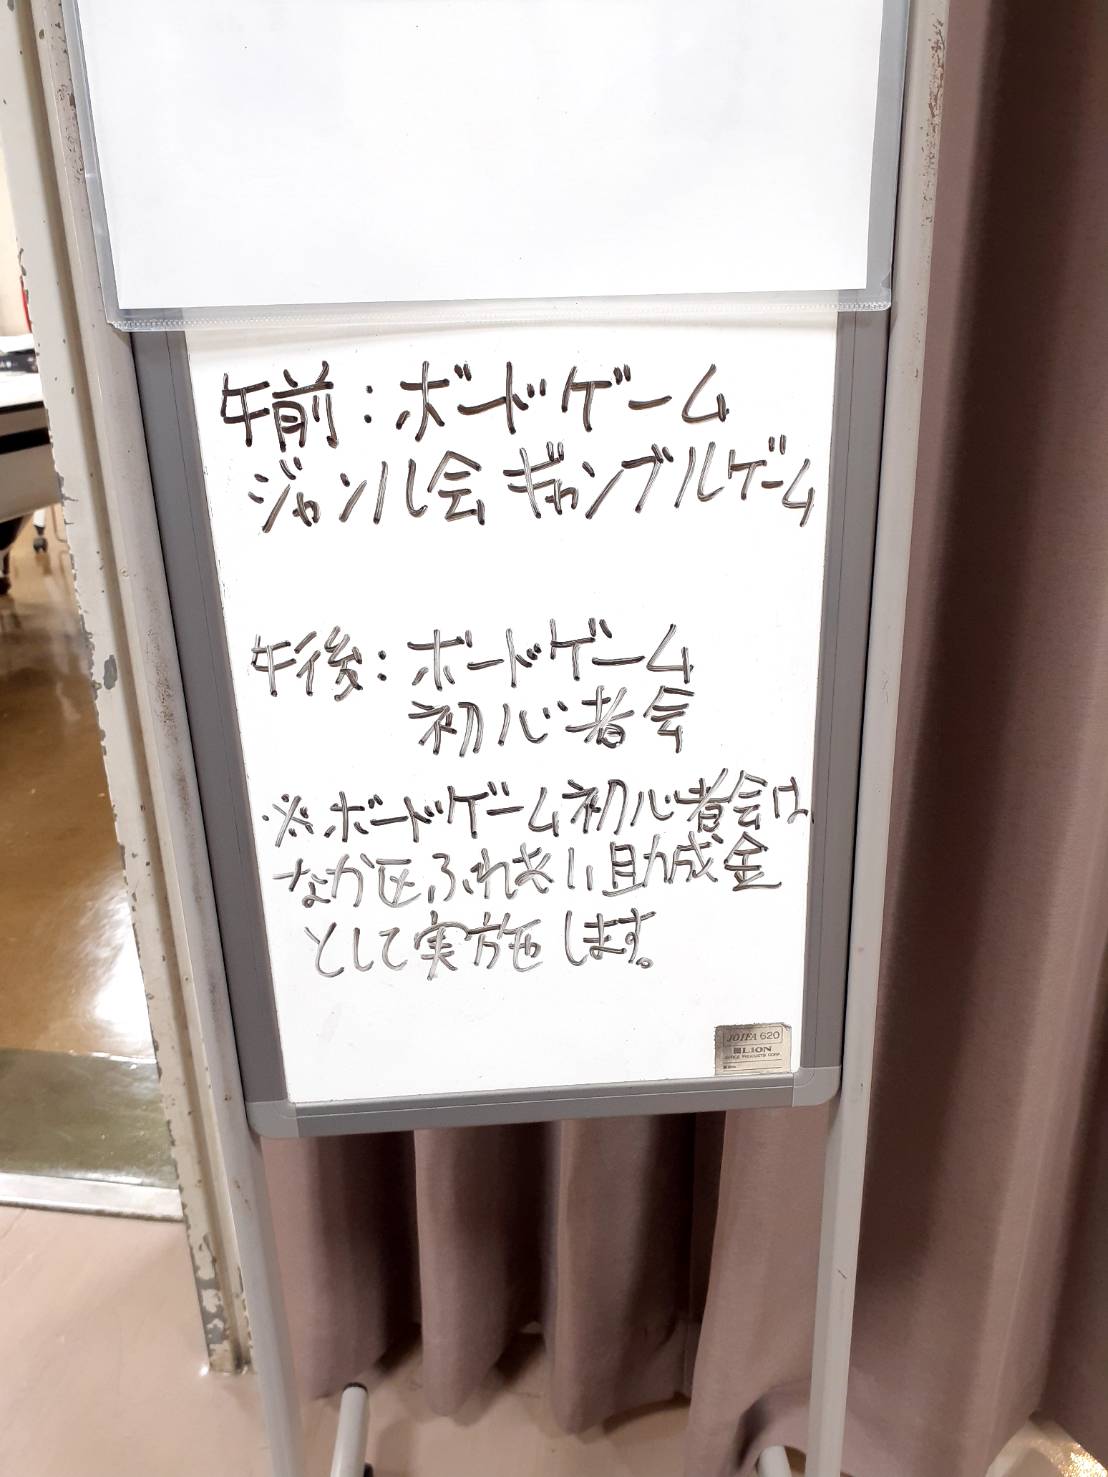 午前：ボードゲーム
ジャンル会 ギャンブルゲーム
午後：ボードゲーム
初心者会
※ボードゲーム初心者会は
なか区ふれあい助成金
として実施します。
JOIFA 620
LION
OFFICE PRODUCTS CORP.